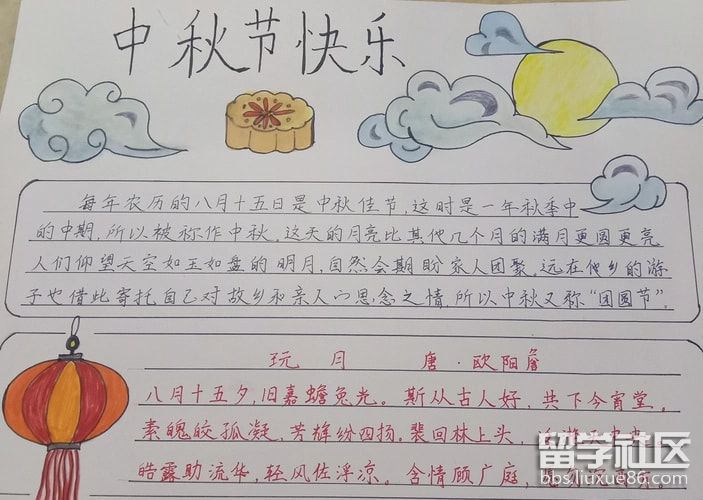 中秋节快乐
每年农历的八月十五日是中秋佳节,这时是一年秋季中
的中期,所以被称作中秋,这天的月亮比其他几个月的满月更圆更亮
人们仰望天空如玉如盘的明月,自然会期盼家人团聚,远在他乡的游
子也借此寄托自己对故乡和亲人们思念之情,所以中秋又称“团圆节”。
玩月 唐·欧阳詹
八月十五夕,旧嘉蟾兔光。斯从古人好,共下今宵堂。
素魄皎孤凝,芳辉纷四扬。裴回林上头,
皓露助流华,轻风佐浮凉。含情顾广庭,
留学社区
bbs.liuxue86.com